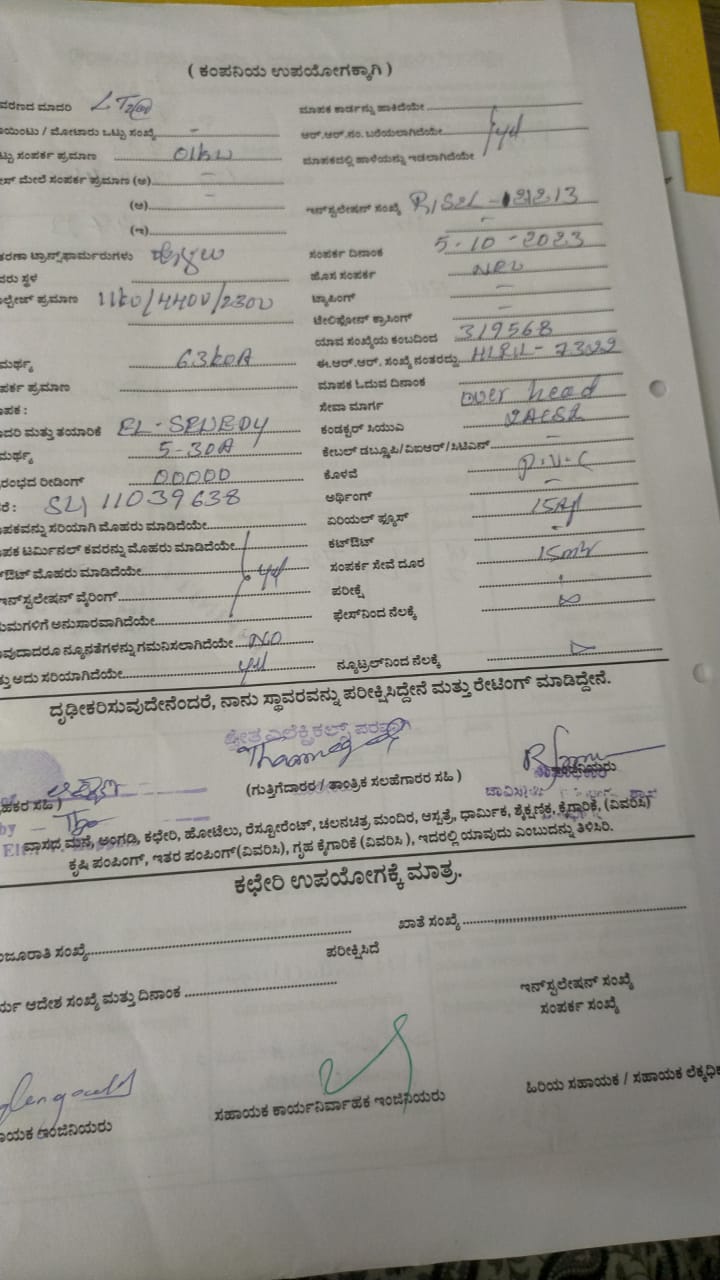 ( ಕಂಪನಿಯ ಉಪಯೋಗಕ್ಕಾಗಿ )
ವರಣದ ಮಾದರಿ
ಮಾಪಕ ಕಾರ್ಡನ್ನು ಹಾಕಿದೆಯೇ
ಯಿಂಟು / ಮೋಟಾರು ಒಟ್ಟು ಸಂಖ್ಯೆ -
ಆರ್.ಆರ್.ನಂ. ಬರೆಯಲಾಗಿದೆಯೇ
ಟ್ಟು ಸಂಪರ್ಕ ಪ್ರಮಾಣ 01kw
ಮಾಪಕದಲ್ಲಿ ಹಾಳೆಯನ್ನು ಇಡಲಾಗಿದೆಯೇ
ೇಸ್ ಮೇಲೆ ಸಂಪರ್ಕ ಪ್ರಮಾಣ (ಅ) -
(ಆ) -
ಇನ್‌ಸ್ಟಲೇಷನ್ ಸಂಖ್ಯೆ
(ಇ)
ಕರಣಾ ಟ್ರಾನ್ಸ್‌ಫಾರ್ಮರುಗಳು
ಸಂಪರ್ಕ ದಿನಾಂಕ 5-10-2023
ವರು ಸ್ಥಳ
ಹೊಸ ಸಂಪರ್ಕ
ೋಲ್ಟೇಜ್ ಪ್ರಮಾಣ 11kv/440v/230v
ಟ್ಯಾಪಿಂಗ್ -
ಟೆಲಿಫೋನ್ ಕ್ರಾಸಿಂಗ್ -
ಯಾವ ಸಂಖ್ಯೆಯ ಕಂಬದಿಂದ 319568
ಮರ್ಥ್ಯ 63kVA
ಈ.ಆರ್.ಆರ್. ಸಂಖ್ಯೆ ನಂತರದ್ದು
ಪರ್ಕ ಪ್ರಮಾಣ
ಮಾಪಕ ಓದುವ ದಿನಾಂಕ
ಾಪಕ :
ಸೇವಾ ಮಾರ್ಗ over head
ಾದರಿ ಮತ್ತು ತಯಾರಿಕೆ
ಕಂಡಕ್ಟರ್ ಸಿಯುಎ
ಮರ್ಥ್ಯ 5-30A
ಕೇಬಲ್ ಡಬ್ಲ್ಯೂಪಿ/ವಿಐಆರ್/ಸಿಟಿಎಸ್ -
ರಂಭದ ರೀಡಿಂಗ್ 00000
ಕೊಳವೆ P.V.C
ರೆ : SL) 11039638
ಅರ್ಥಿಂಗ್ -
ಾಪಕವನ್ನು ಸರಿಯಾಗಿ ಮೊಹರು ಮಾಡಿದೆಯೇ
ಏರಿಯಲ್ ಫ್ಯೂಸ್
ಾಪಕ ಟರ್ಮಿನಲ್ ಕವರನ್ನು ಮೊಹರು ಮಾಡಿದೆಯೇ
ಕಟ್‌ಔಟ್ -
್‌ಔಟ್ ಮೊಹರು ಮಾಡಿದೆಯೇ
ಸಂಪರ್ಕ ಸೇವೆ ದೂರ
ಇನ್‌ಸ್ಟಲೇಷನ್ ವೈರಿಂಗ್
ಪರೀಕ್ಷೆ
ಯಮಗಳಿಗೆ ಅನುಸಾರವಾಗಿದೆಯೇ
ಫೇಸ್‌ನಿಂದ ನೆಲಕ್ಕೆ
ಾವುದಾದರೂ ನ್ಯೂನತೆಗಳನ್ನು ಗಮನಿಸಲಾಗಿದೆಯೇ NO
ತ್ತು ಅದು ಸರಿಯಾಗಿದೆಯೇ
ನ್ಯೂಟ್ರಲ್‌ನಿಂದ ನೆಲಕ್ಕೆ
ದೃಢೀಕರಿಸುವುದೇನೆಂದರೆ, ನಾನು ಸ್ಥಾವರವನ್ನು ಪರೀಕ್ಷಿಸಿದ್ದೇನೆ ಮತ್ತು ರೇಟಿಂಗ್ ಮಾಡಿದ್ದೇನೆ.
ಹಕರ ಸಹಿ )
(ಗುತ್ತಿಗೆದಾರರ / ತಾಂತ್ರಿಕ ಸಲಹೆಗಾರರ ಸಹಿ )
ವಾಸದ ಮನೆ, ಅಂಗಡಿ, ಕಛೇರಿ, ಹೋಟೆಲು, ರೆಸ್ಟೋರೆಂಟ್, ಚಲನಚಿತ್ರ ಮಂದಿರ, ಆಸ್ಪತ್ರೆ, ಧಾರ್ಮಿಕ, ಶೈಕ್ಷಣಿಕ, ಕೈಗಾರಿಕೆ, (ವಿವರಿಸಿ)
ಕೃಷಿ ಪಂಪಿಂಗ್, ಇತರ ಪಂಪಿಂಗ್(ವಿವರಿಸಿ), ಗೃಹ ಕೈಗಾರಿಕೆ (ವಿವರಿಸಿ ), ಇದರಲ್ಲಿ ಯಾವುದು ಎಂಬುದನ್ನು ತಿಳಿಸಿರಿ.
ಕಛೇರಿ ಉಪಯೋಗಕ್ಕೆ ಮಾತ್ರ.
ಂಜೂರಾತಿ ಸಂಖ್ಯೆ
ಖಾತೆ ಸಂಖ್ಯೆ
ಪರೀಕ್ಷಿಸಿದೆ
ರ್ಯ ಆದೇಶ ಸಂಖ್ಯೆ ಮತ್ತು ದಿನಾಂಕ
ಇನ್‌ಸ್ಟಲೇಷನ್ ಸಂಖ್ಯೆ
ಸಂಪರ್ಕ ಸಂಖ್ಯೆ
ಾಯಕ ಇಂಜಿನಿಯರು
ಸಹಾಯಕ ಕಾರ್ಯನಿರ್ವಾಹಕ ಇಂಜಿನಿಯರು
ಹಿರಿಯ ಸಹಾಯಕ / ಸಹಾಯಕ ಲೆಕ್ಕಾಧಿಕ